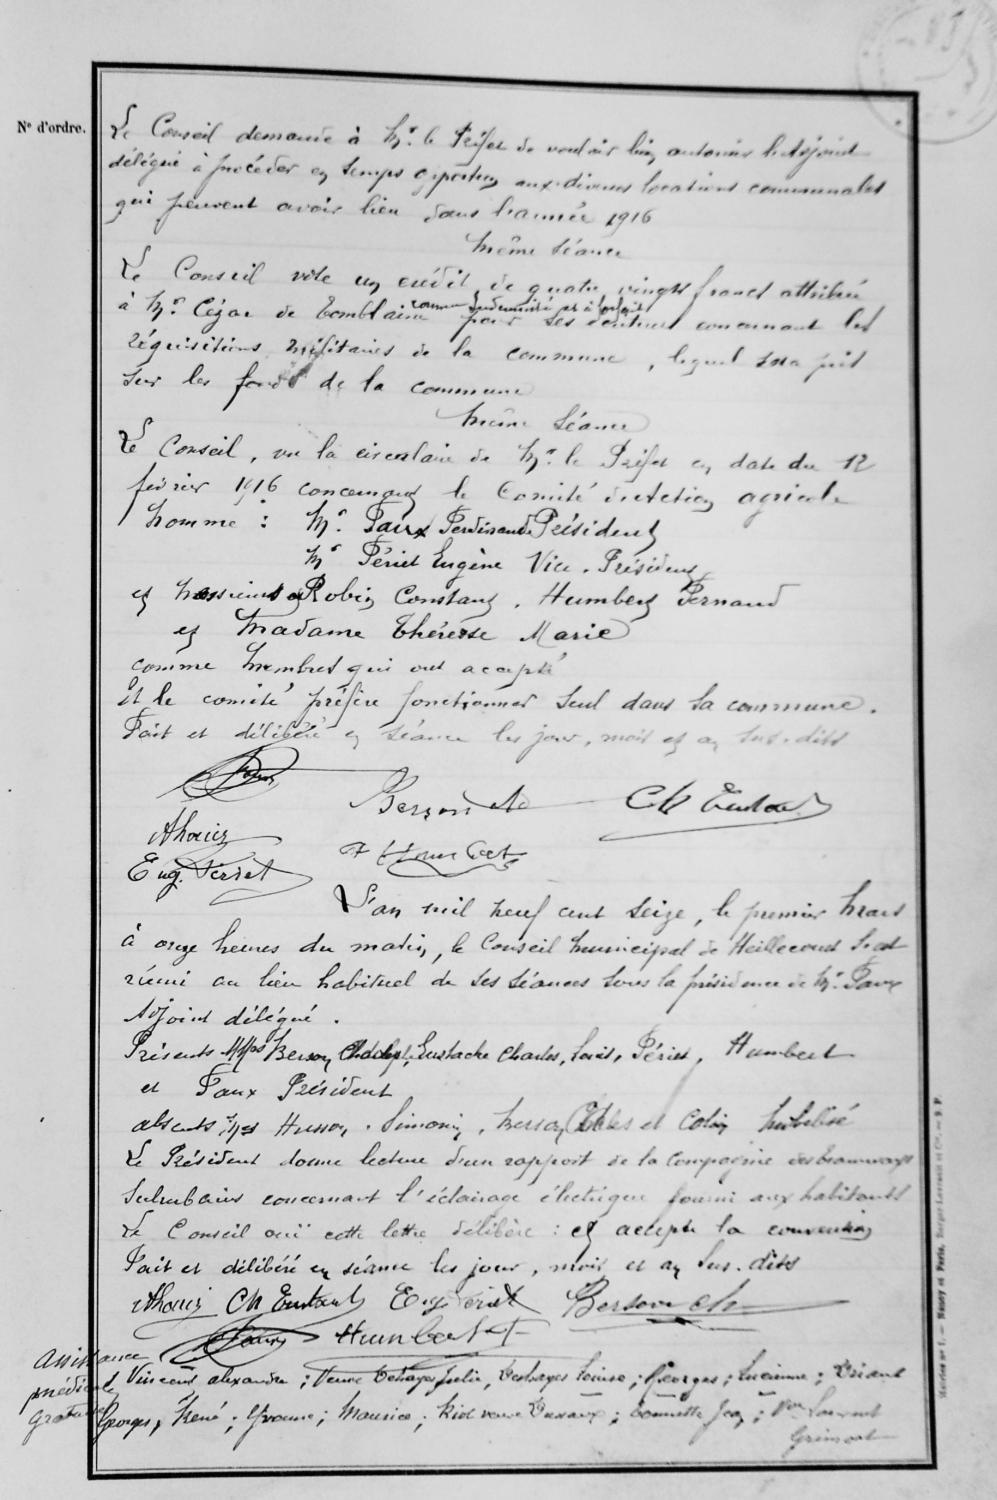 Nº d'ordre.
Le Conseil demande à Mr. le Préfet de vouloir bien autoriser l'Adjoint
délégué à procéder en temps opportun aux diverses locations communales
qui peuvent avoir lieu dans l'année 1916
Même Séance
Le Conseil vote un crédit de quatre vingts francs attribué
à Mr. Cézar de Tomblaine comme indemnité et à forfait pour ses concernant les
réquisitions militaires de la commune, lequel sera pris
sur les fonds de la commune
Même Séance
Le Conseil, vu la circulaire de Mr. le Préfet en date du 12
février 1916 concernant le Comité d'Action agricole
Nomme : Mr. Faux Ferdinand Président
Mr Périet Eugène Vice-Président
et Messieurs Robin Constant, Humbert Fernand
et Madame Thérèse Marie
comme membres qui ont accepté
Et le comité préfère fonctionner seul dans sa commune.
Fait et délibéré en séance les jour, mois et an sus-dits
Faux
Ch Eustache
Eug. Périet
F Humbert
L'an mil neuf cent seize, le premier Mars
à onze heures du matin, le Conseil Municipal de Heillecourt s'est
réuni au lieu habituel de ses séances sous la présidence de Mr. Faux
Adjoint délégué.
Présents MMrs Berson, Eustache Charles, Périet, Humbert
et Faux Président
absents Mrs Husson, Simonin, Berson et Colin mobilisé
Le Président donne lecture d'un rapport de la Compagnie des tramways
Suburbains concernant l'éclairage électrique fourni aux habitants
Le Conseil ouï cette lettre délibère : et accepte la convention
Fait et délibéré en séance les jour, mois et an sus-dits
Ch Eustache Eug Périet Berson Ch
Faux Humbert F
Assistance
médicale Vincent alexandre ; Veuve Julie, Louise ; Georges ; Lucienne ;
gratuite Georges, René ; Yvonne ; Maurice ; veuve
Grimont